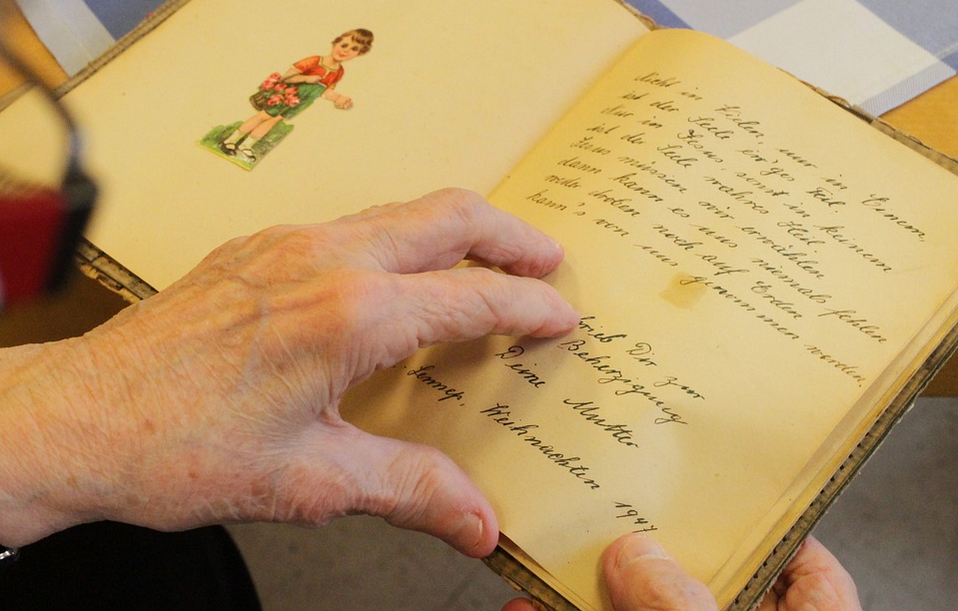 Nicht in Vielen, nur in Einem,
ist der Seele ew'ges Teil.
Nur in Jesus, sonst in keinem
ist der Seele wahres Heil.
Jesus müssen wir erwählen
dann kann es uns niemals fehlen
weder droben noch auf Erden
kann's von uns genommen werden.
Dir zur
Beherzigung
Deine Mutter
Lennep, Weihnachten 1947